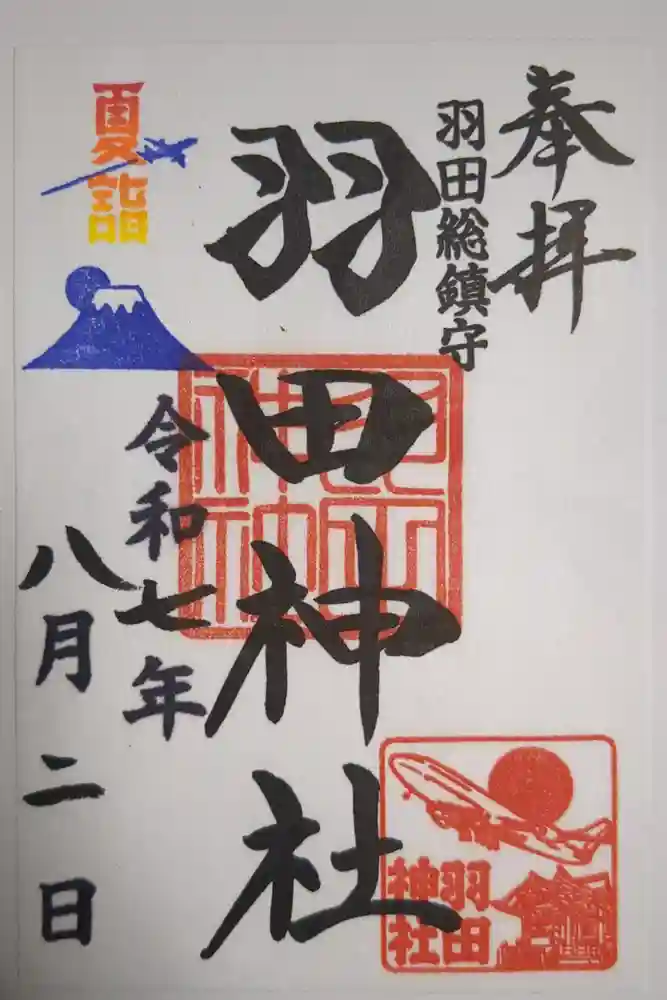 奉拝
羽田総鎮守
羽田神社
令和七年
八月二日
夏詣
羽田
神社